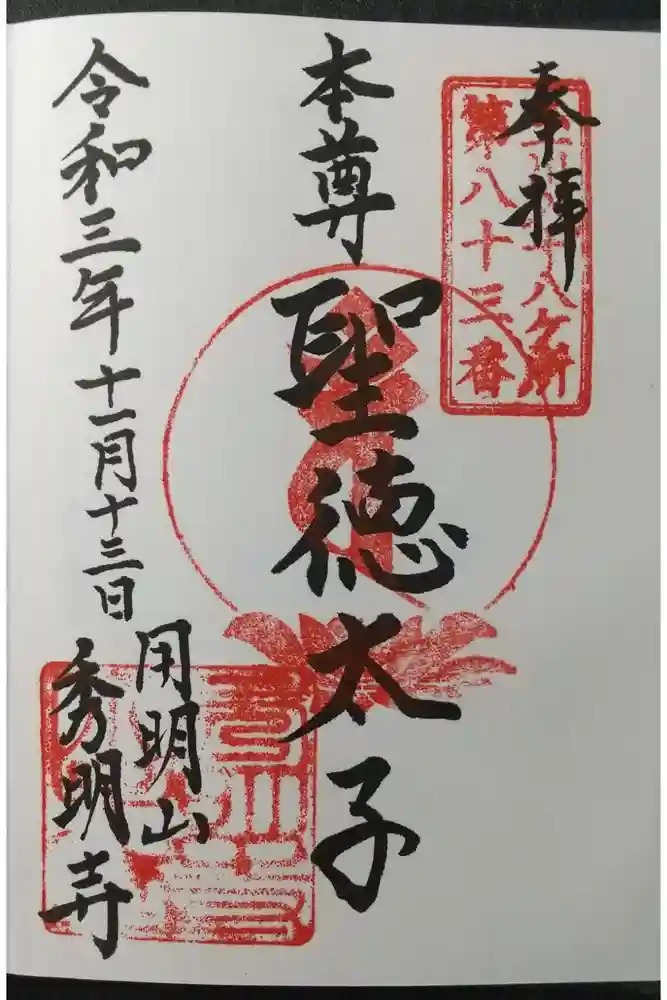 奉拝
八ヶ所
第八十三番
本尊 聖徳太子
令和三年十一月十三日
用明山
秀明寺